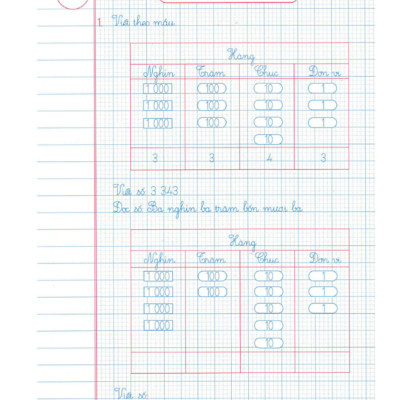 1. Viết theo mẫu
Hàng
Nghìn Trăm Chục Đơn vị
1 000 100 10 1
1 000 100 10 1
1 000 100 10 1
10
3 3 4 3
Viết số 3 343
Đọc số Ba nghìn ba trăm bốn mươi ba
Hàng
Nghìn Trăm Chục Đơn vị
1 000 100 10 1
1 000 100 10 1
1 000 10 1
1 000 10
10
Viết số